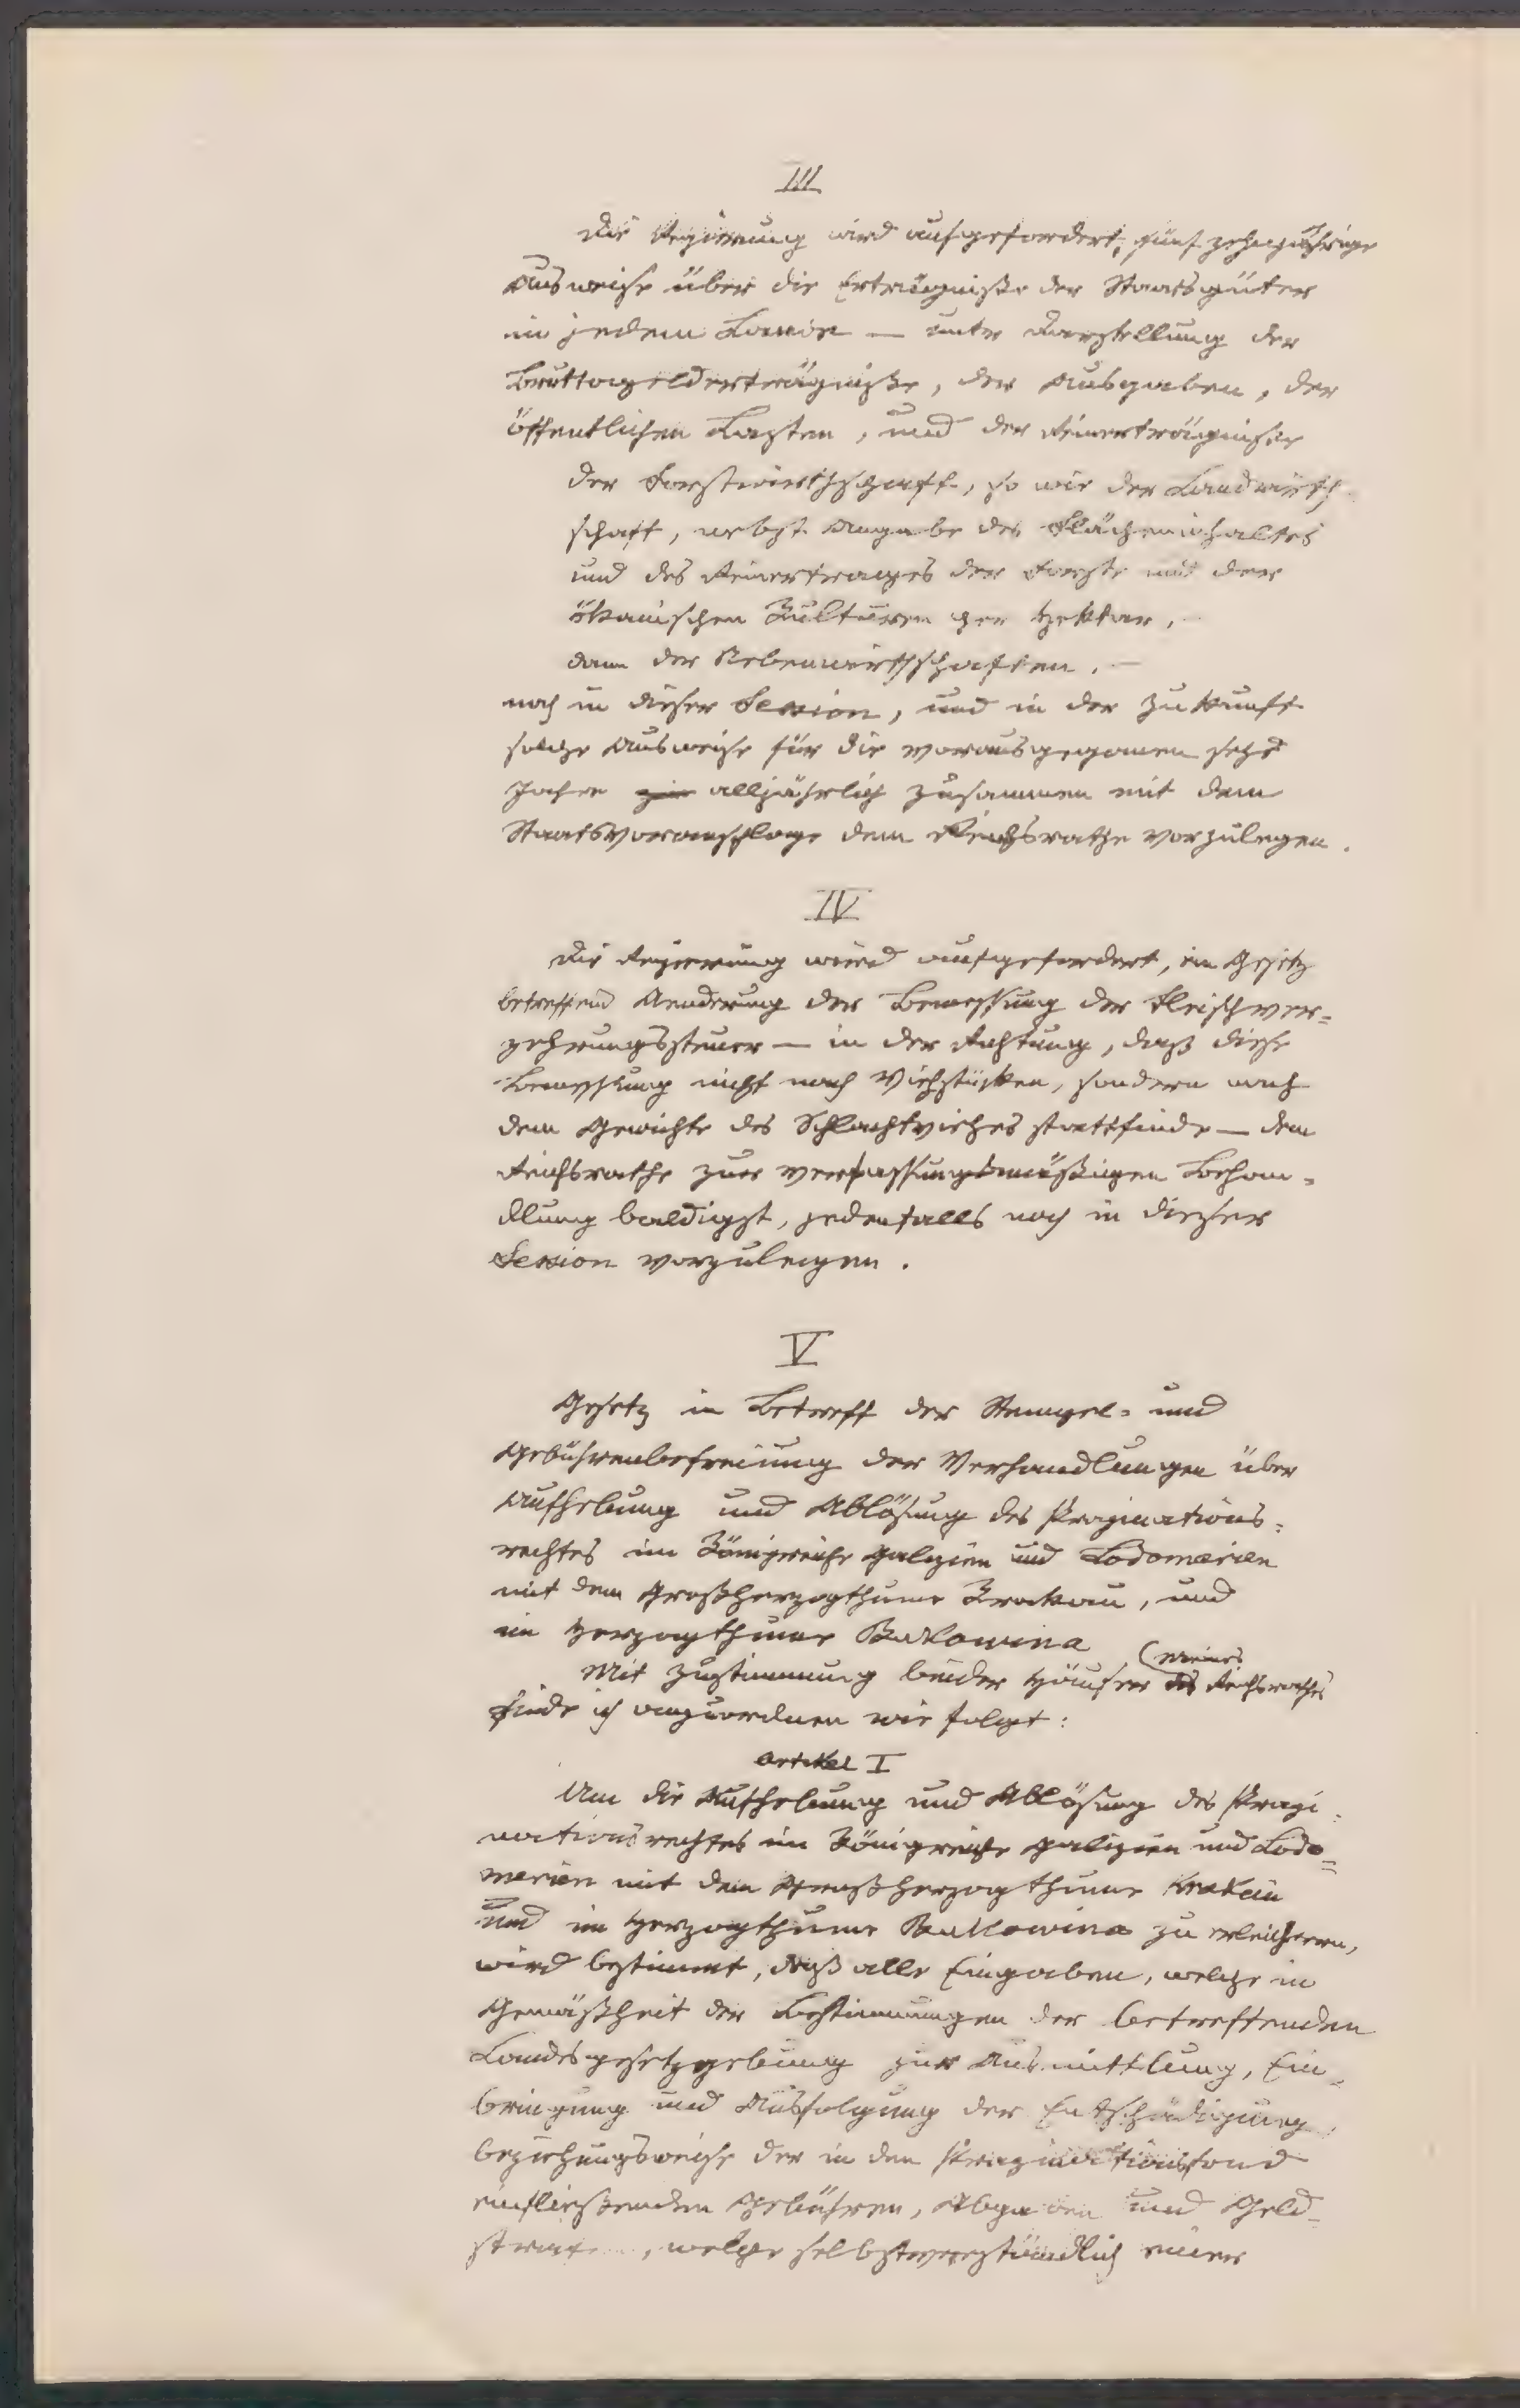 III
Die Regierung wird aufgefordert, fünfzehnjährige
Ausweise über die Erträgnisse der Staatsgüter
in jedem Lande — unter Darstellung der
Bruttogelderträgnisse, der Ausgaben, der
öffentlichen Lasten, und der Reinerträgnisse
der Forstwirthschaft, so wie der Landwirth
schaft, nebst Angabe des Flächeninhaltes
und des Reinertrages der Forste und der
ökonischen Kulturen per Hektar,
dann der Nebenwirthschaften. —
noch in dieser Session, und in der Zukunft
solche Ausweise für die vorausgegangenen sechs
Jahre alljährlich zusammen mit dem
Staatsvoranschlage dem Reichsrathe vorzulegen.
IV
Die Regierung wird aufgefordert, ein Gesetz
betreffend Aenderung der Bemessung der Fleischver=
zehrungssteuer — in der Richtung, daß diese
Bemessung nicht nach Viehstücken, sondern nach
dem Gewichte des Schlachtviehes stattfinde — dem
Reichsrathe zur verfassungsmäßigen Behan=
dlung baldigst, jedenfalls noch in dieser
Session vorzulegen.
V
Gesetz in Betreff der Stempel= und
Gebührenbefreiung der Verhandlungen über
Aufhebung und Ablösung des Propinations=
rechtes im Königreiche Galizien und Lodomerien
mit dem Großherzogthume Krakau, und
im Herzogthume Bukowina
Mit Zustimmung beider Häuser des meines Reichsrathes
finde ich anzuordnen wie folgt:
Artikel I
Um die Aufhebung und Ablösung des Propi
nationsrechtes im Königreiche Galizien und Lodo=
merien mit dem Großherzogthume Krakau
und im Herzogthume Bukowina zu erleichtern,
wird bestimmt, daß alle Eingaben, welche in
Gemäßheit der Bestimmungen der betreffenden
Landesgesetzgebung zur Ausmittlung, Ein=
bringung und Ausfolgung der Entschädigung
beziehungsweise der in den Propinationsfond
einfließenden Gebühren, Abgaben und Geld=
, welche selbstverständlich einer